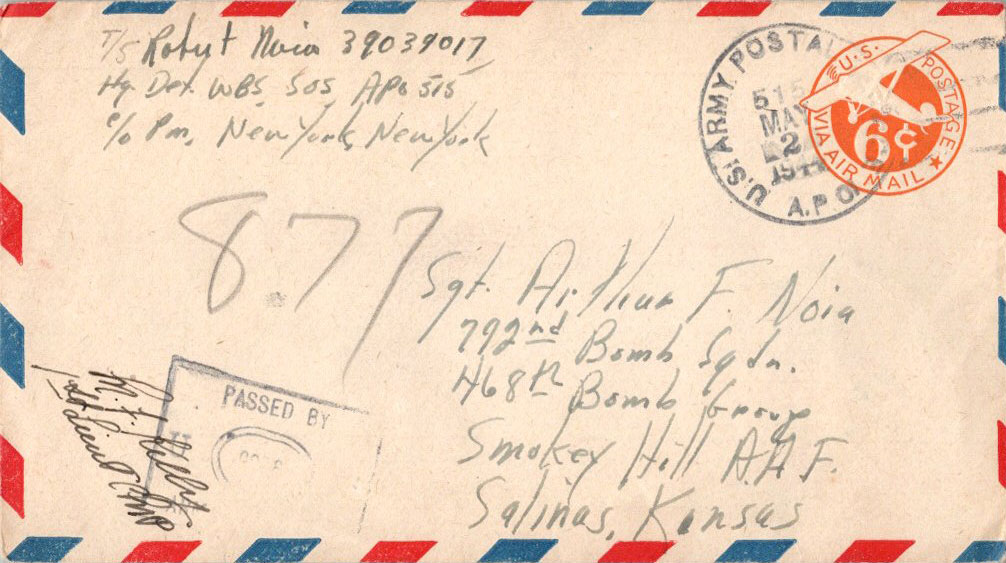 T/5 Robert Noia 39039017
Hq. Det. WBS, SOS APO 515
c/o Pm, New York, New York
U.S. ARMY POSTAL
A.P.O.
515
MAY
2
1944
U.S. POSTAGE
6¢
VIA AIR MAIL
8.77
Sgt. Arthur F. Noia
792nd Bomb Sqdn.
468th Bomb Group
Smokey Hill A.A.F.
Salinas, Kansas
PASSED BY